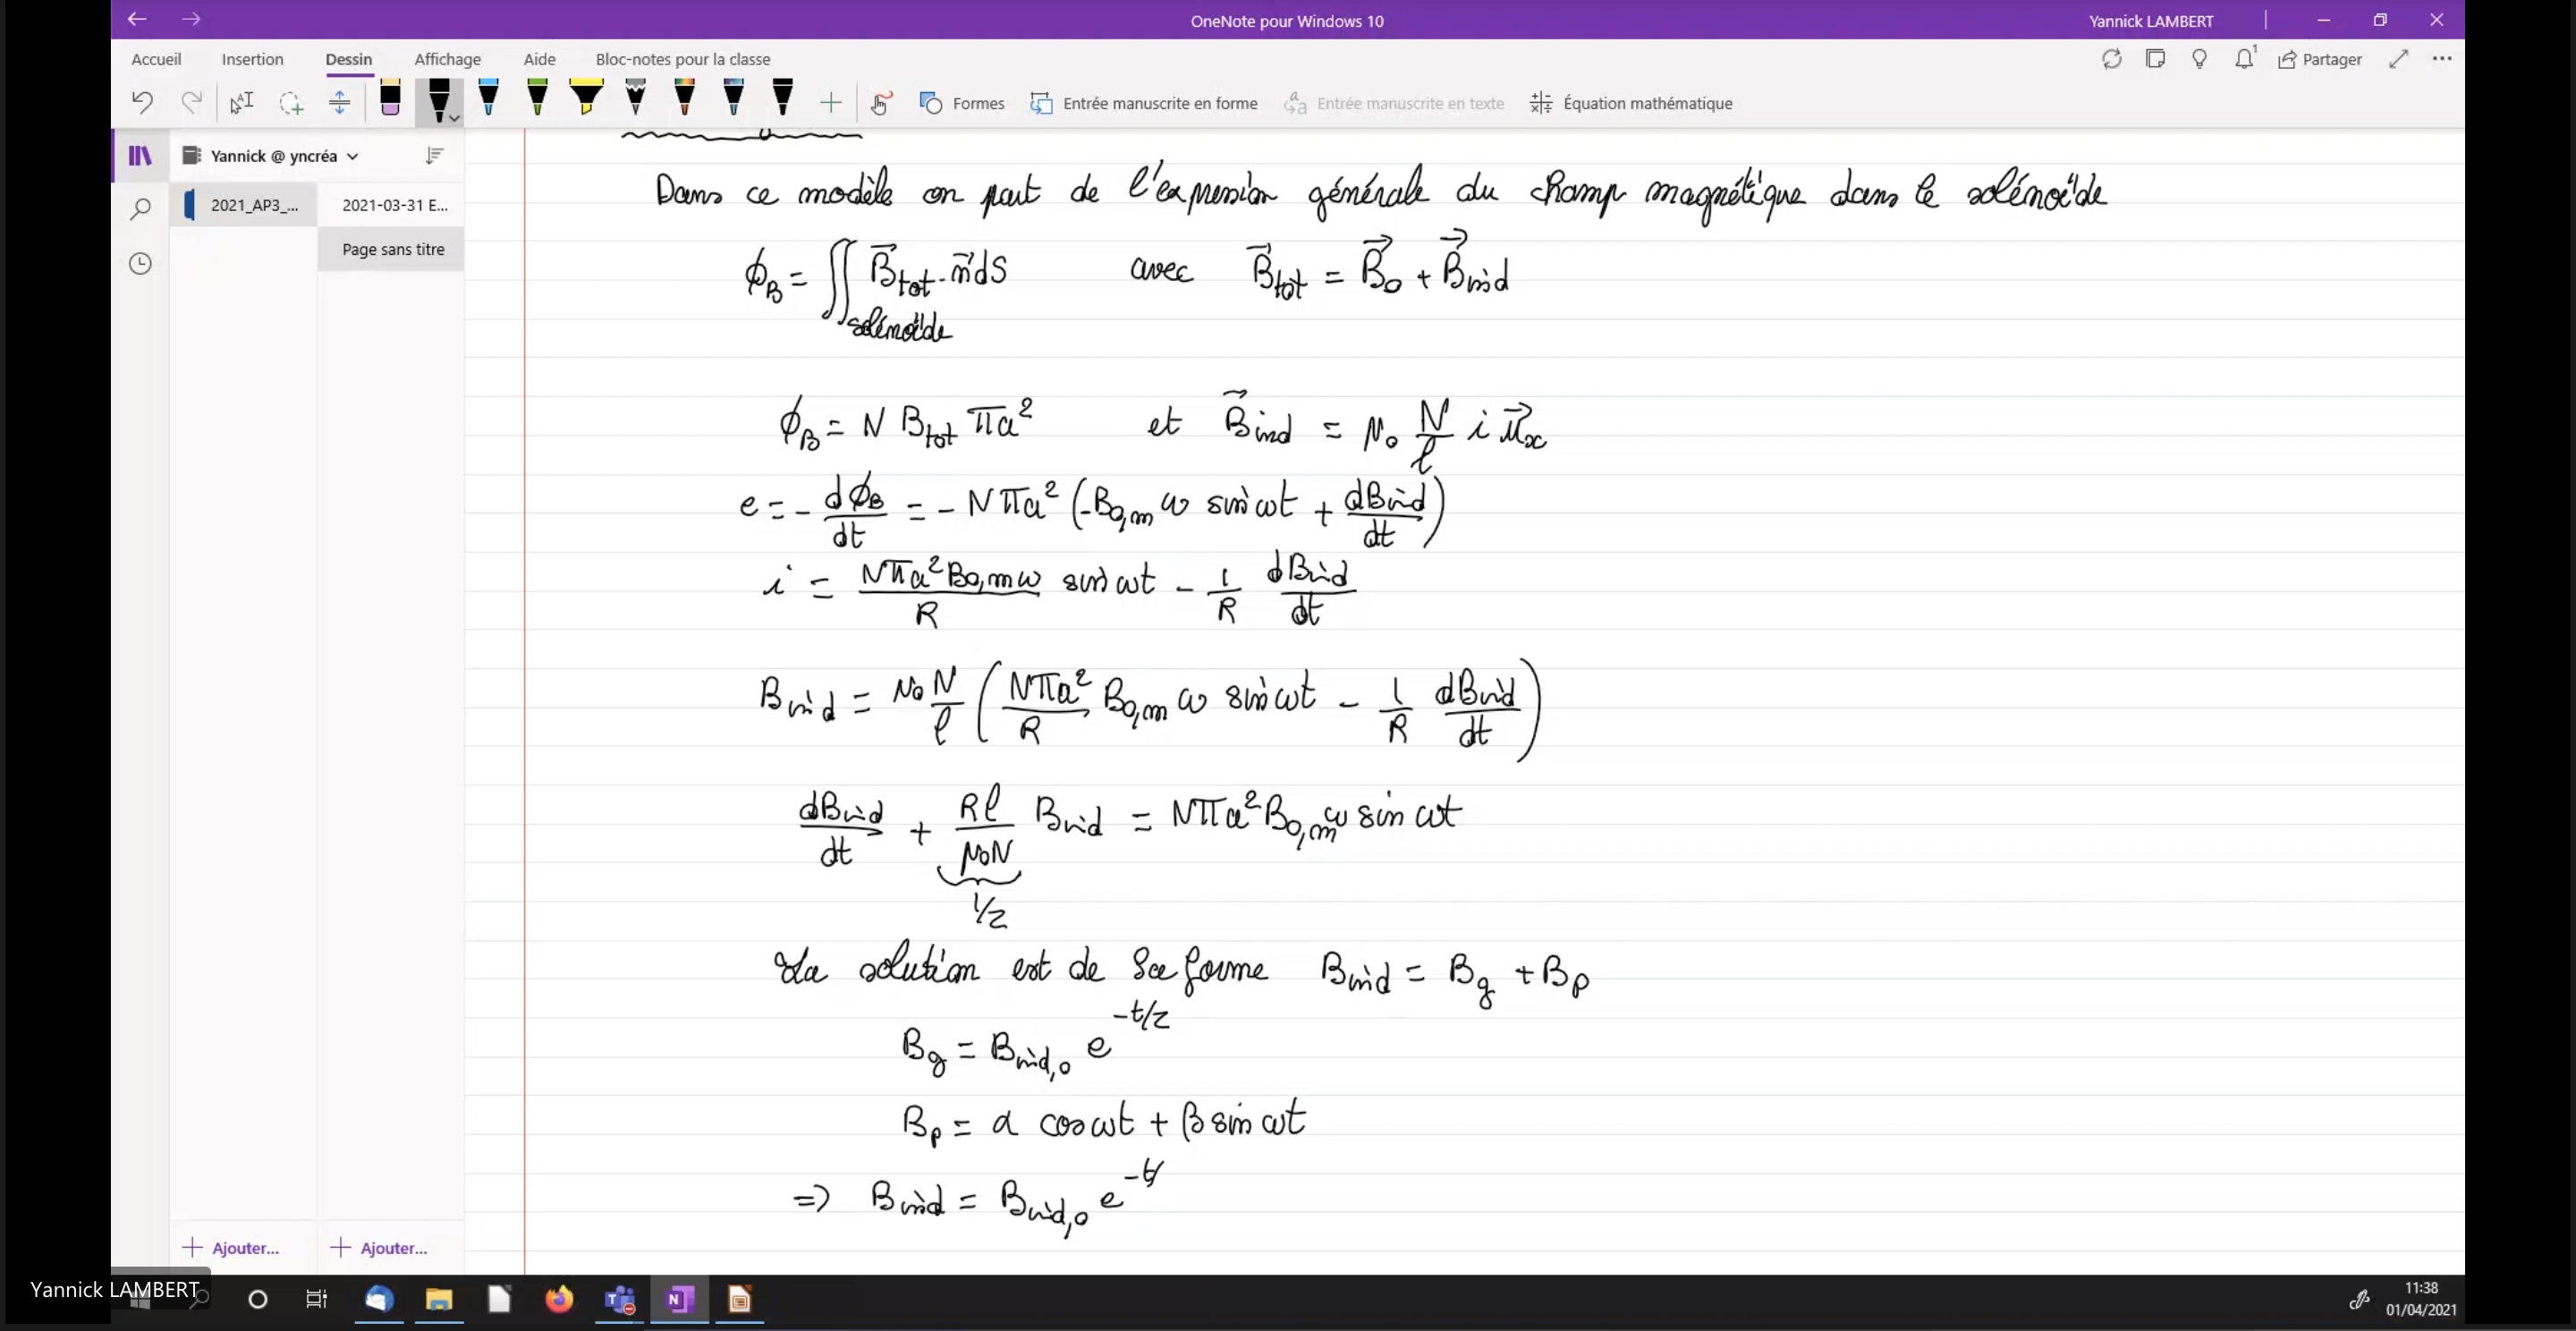 OneNote pour Windows 10
Yannick LAMBERT
Accueil Insertion Dessin Affichage Aide Bloc-notes pour la classe
Partager
Formes Entrée manuscrite en forme Entrée manuscrite en texte Équation mathématique
Yannick @ yncréa
2021_AP3_...
2021-03-31 E...
Page sans titre
Dans ce modèle on part de l'expression générale du champ magnétique dans le solénoïde
ϕ_B = ∬_solénoïde B⃗_tot · n⃗ dS avec B⃗_tot = B⃗_0 + B⃗_ind
ϕ_B = N B_tot πa² et B⃗_ind = μ_0 N/ℓ i u⃗_x
e = - dϕ_B/dt = - Nπa² (-B_0,m ω sin ωt + dB_ind/dt)
i = Nπa²B_0,mω/R sin ωt - 1/R dB_ind/dt
B_ind = μ_0 N/ℓ (Nπa²/R B_0,m ω sin ωt - 1/R dB_ind/dt)
dB_ind/dt + Rℓ/μ_0N B_ind = Nπa²B_0,m ω sin ωt
1/τ
La solution est de la forme B_ind = B_g + B_p
B_g = B_ind,0 e^(-t/τ)
B_p = α cos ωt + β sin ωt
=> B_ind = B_ind,0 e^(-t/
Ajouter... Ajouter...
Yannick LAMBERT
11:38
01/04/2021